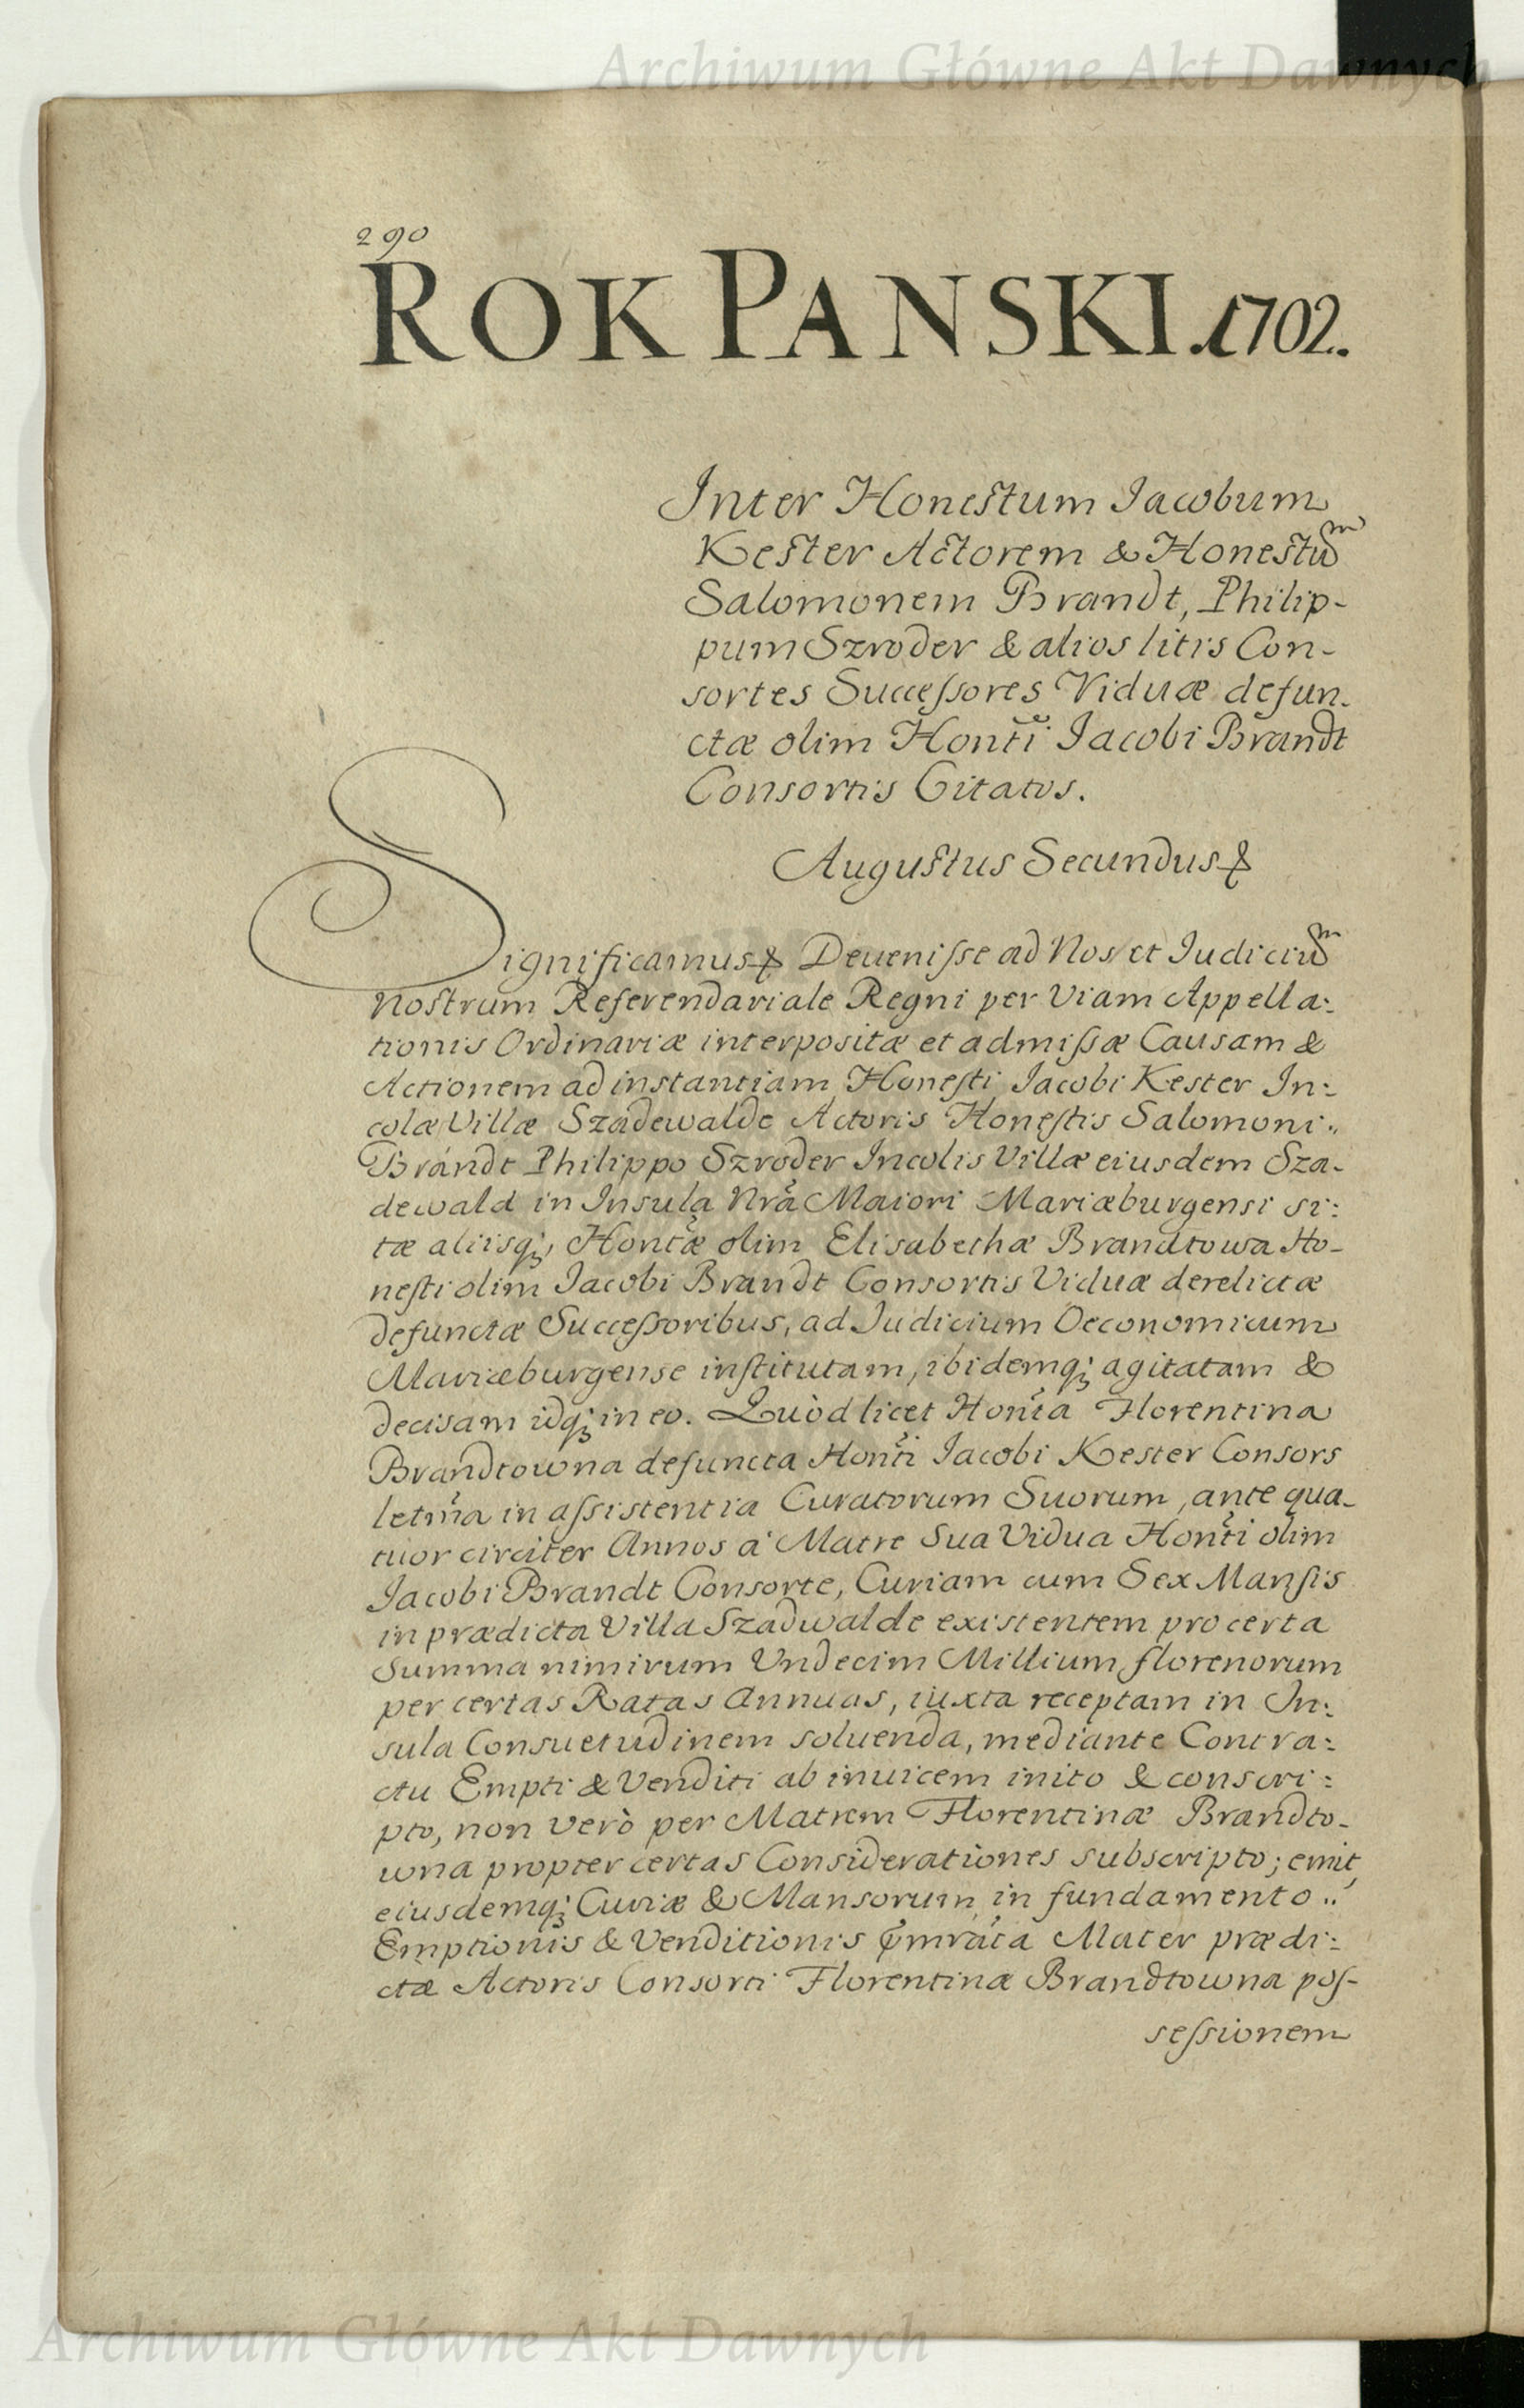 Archiwum Główne Akt Dawnych
290
ROK PANSKI.1702.
Inter Honestum Iacobum
Kester Actorem & Honestum
Salomonem Brandt, Philip-
pum Szroder & alios litis Con-
sortes Successores Viduæ defun-
ctæ olim Honti Iacobi Brandt
Consortis Citatos.
Augustus Secundus &
Significamus & Devenisse ad Nos et Iudicium
nostrum Referendariale Regni per Viam Appella:
tionis Ordinariæ interpositæ et admissæ Causam &
Actionem ad instantiam Honesti Iacobi Kester In:
colæ Villæ Szadewalde Actoris Honestis Salomoni
Brandt Philippo Szroder Incolis Villæ eiusdem Sza-
dewald in Insula Nra Maiori Mariæburgensi si:
tæ aliisq; Hontæ olim Elisabethæ Brandtowa Ho-
nesti olim Iacobi Brandt Consortis Viduæ derelictæ
defunctæ Successoribus, ad Iudicium Oeconomicum
Mariæburgense institutam, ibidemq; agitatam &
decisam idq; in eo. Quòd licet Honta Florentina
Brandtowna defuncta Honti Iacobi Kester Consors
letma in assistentia Curatorum Suorum, ante qua-
tuor circiter Annos à Matre Sua Vidua Honti olim
Iacobi Brandt Consorte, Curiam cum Sex Mansis
in prædicta Villa Szadwalde existentem pro certa
Summa nimirum Undecim Millium florenorum
per certas Ratas Annuas, iuxta receptam in In:
sula Consuetudinem soluenda, mediante Contra:
ctu Empti & Venditi ab inuicem inito & conscri:
pto, non verò per Matrem Florentinæ Brandto-
wna propter certas Considerationes subscripto; emit,
eiusdemq; Curiæ & Mansorum in fundamento
Emptionis & Venditionis Mater prædi:
ctæ Actoris Consorti Florentinæ Brandtowna pos-
sessionem
Archiwum Główne Akt Dawnych